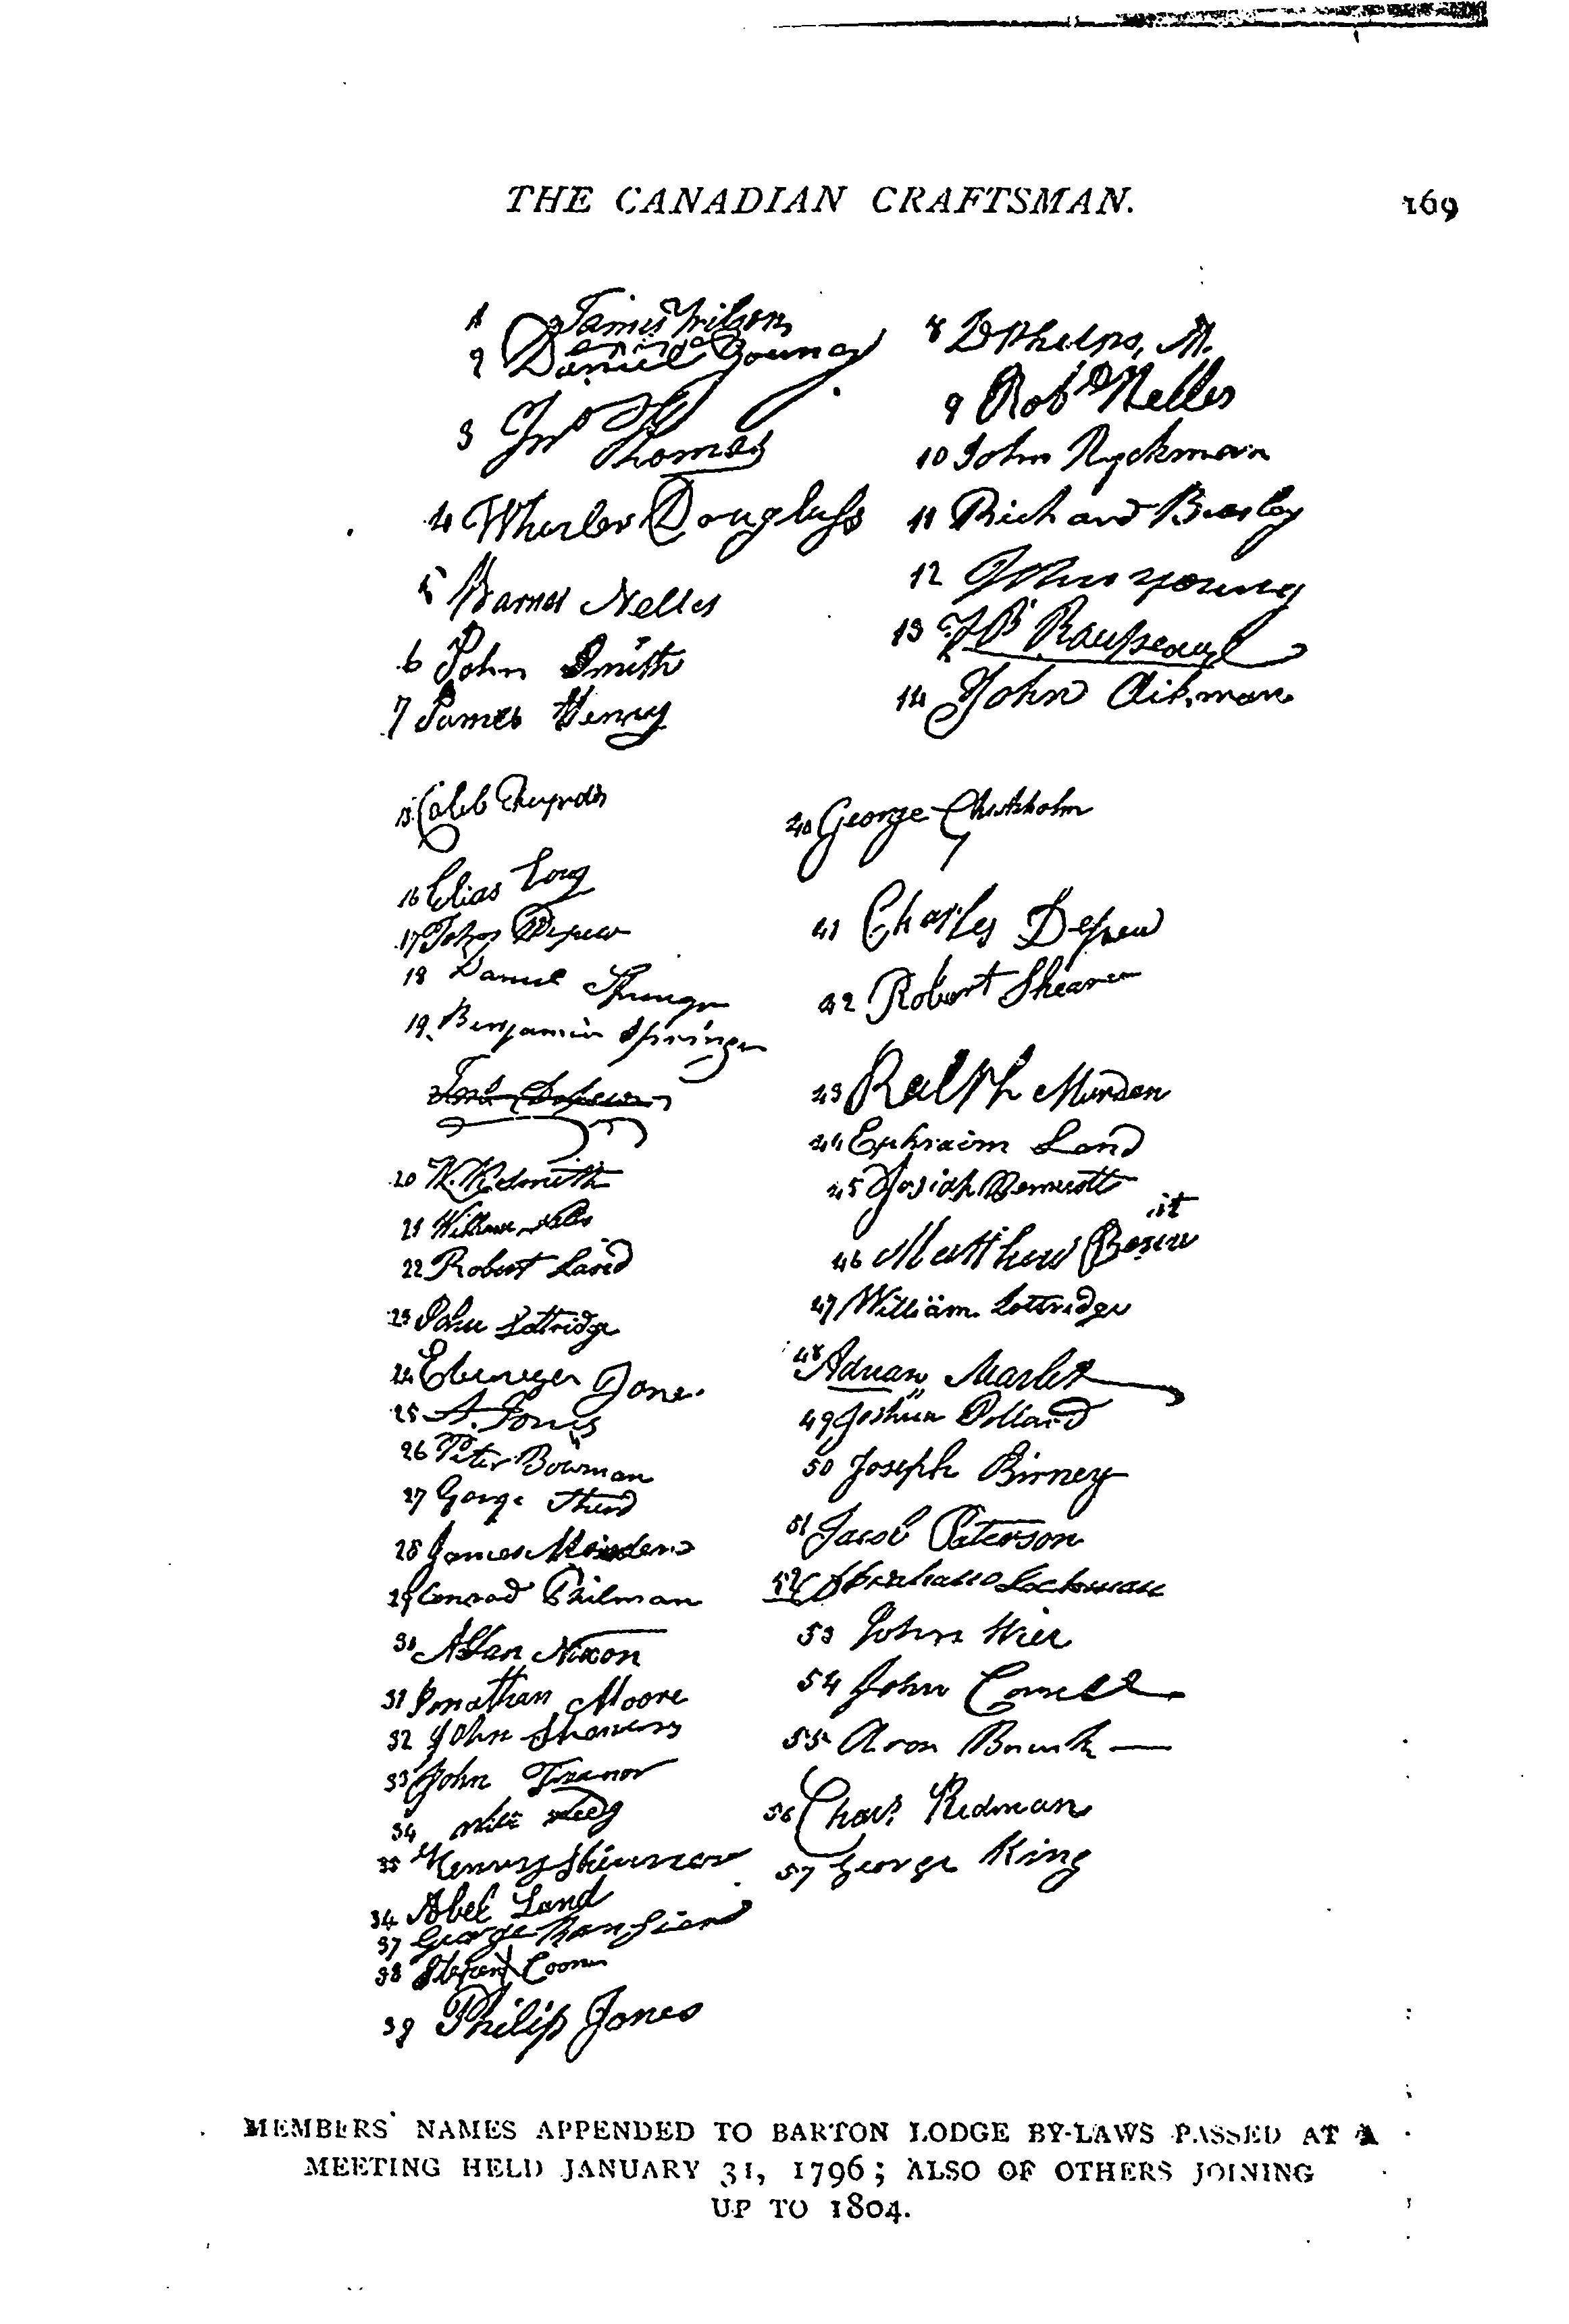 THE CANADIAN CRAFTSMAN. 169
1 James Wilson
2 Daniel Young
3 Jno Thomas
4 Wheeler Douglass
5 Warner Nelles
6 John Smith
7 James Henry
8 D Phelps, M.
9 Robt Nelles
10 John Ryckman
11 Richard Beasley
12 John Young
13 JB Rousseaux
14 John Aikman
15 Caleb
16 Elias Long
17 John Depew
18 Daniel Springer
19 Benjamin Springer
20 W. Hesmith
21 William Nelles
22 Robert Land
23 John Lottridge
24 Ebenezer Jones
25 A. Jones
26 Peter Bowman
27 George
28 James Morden
29 Conrad Philman
30 Allan Nixon
31 Jonathan Moore
32 John Showers
33 John Treanor
34
35 Henry
34 Abel Land
37 George Ransier
38 Stephen Coon
39 Philip Jones
40 George Chishholm
41 Charles Depew
42 Robert Shearer
43 Ralph Morden
44 Ephraim Land
45 Josiah
it
46 Matthew
47 William Lottridge
48 Adrian Marlet
49 Joshua Pollard
50 Joseph Birney
51 Jacob Paterson
52 Abraham Lockman
53 John Wier
54 John Cornell
55 Aron
56 Chas. Ridman
57 George King
MEMBERS' NAMES APPENDED TO BARTON LODGE BY-LAWS PASSED AT A
MEETING HELD JANUARY 31, 1796; ALSO OF OTHERS JOINING
UP TO 1804.